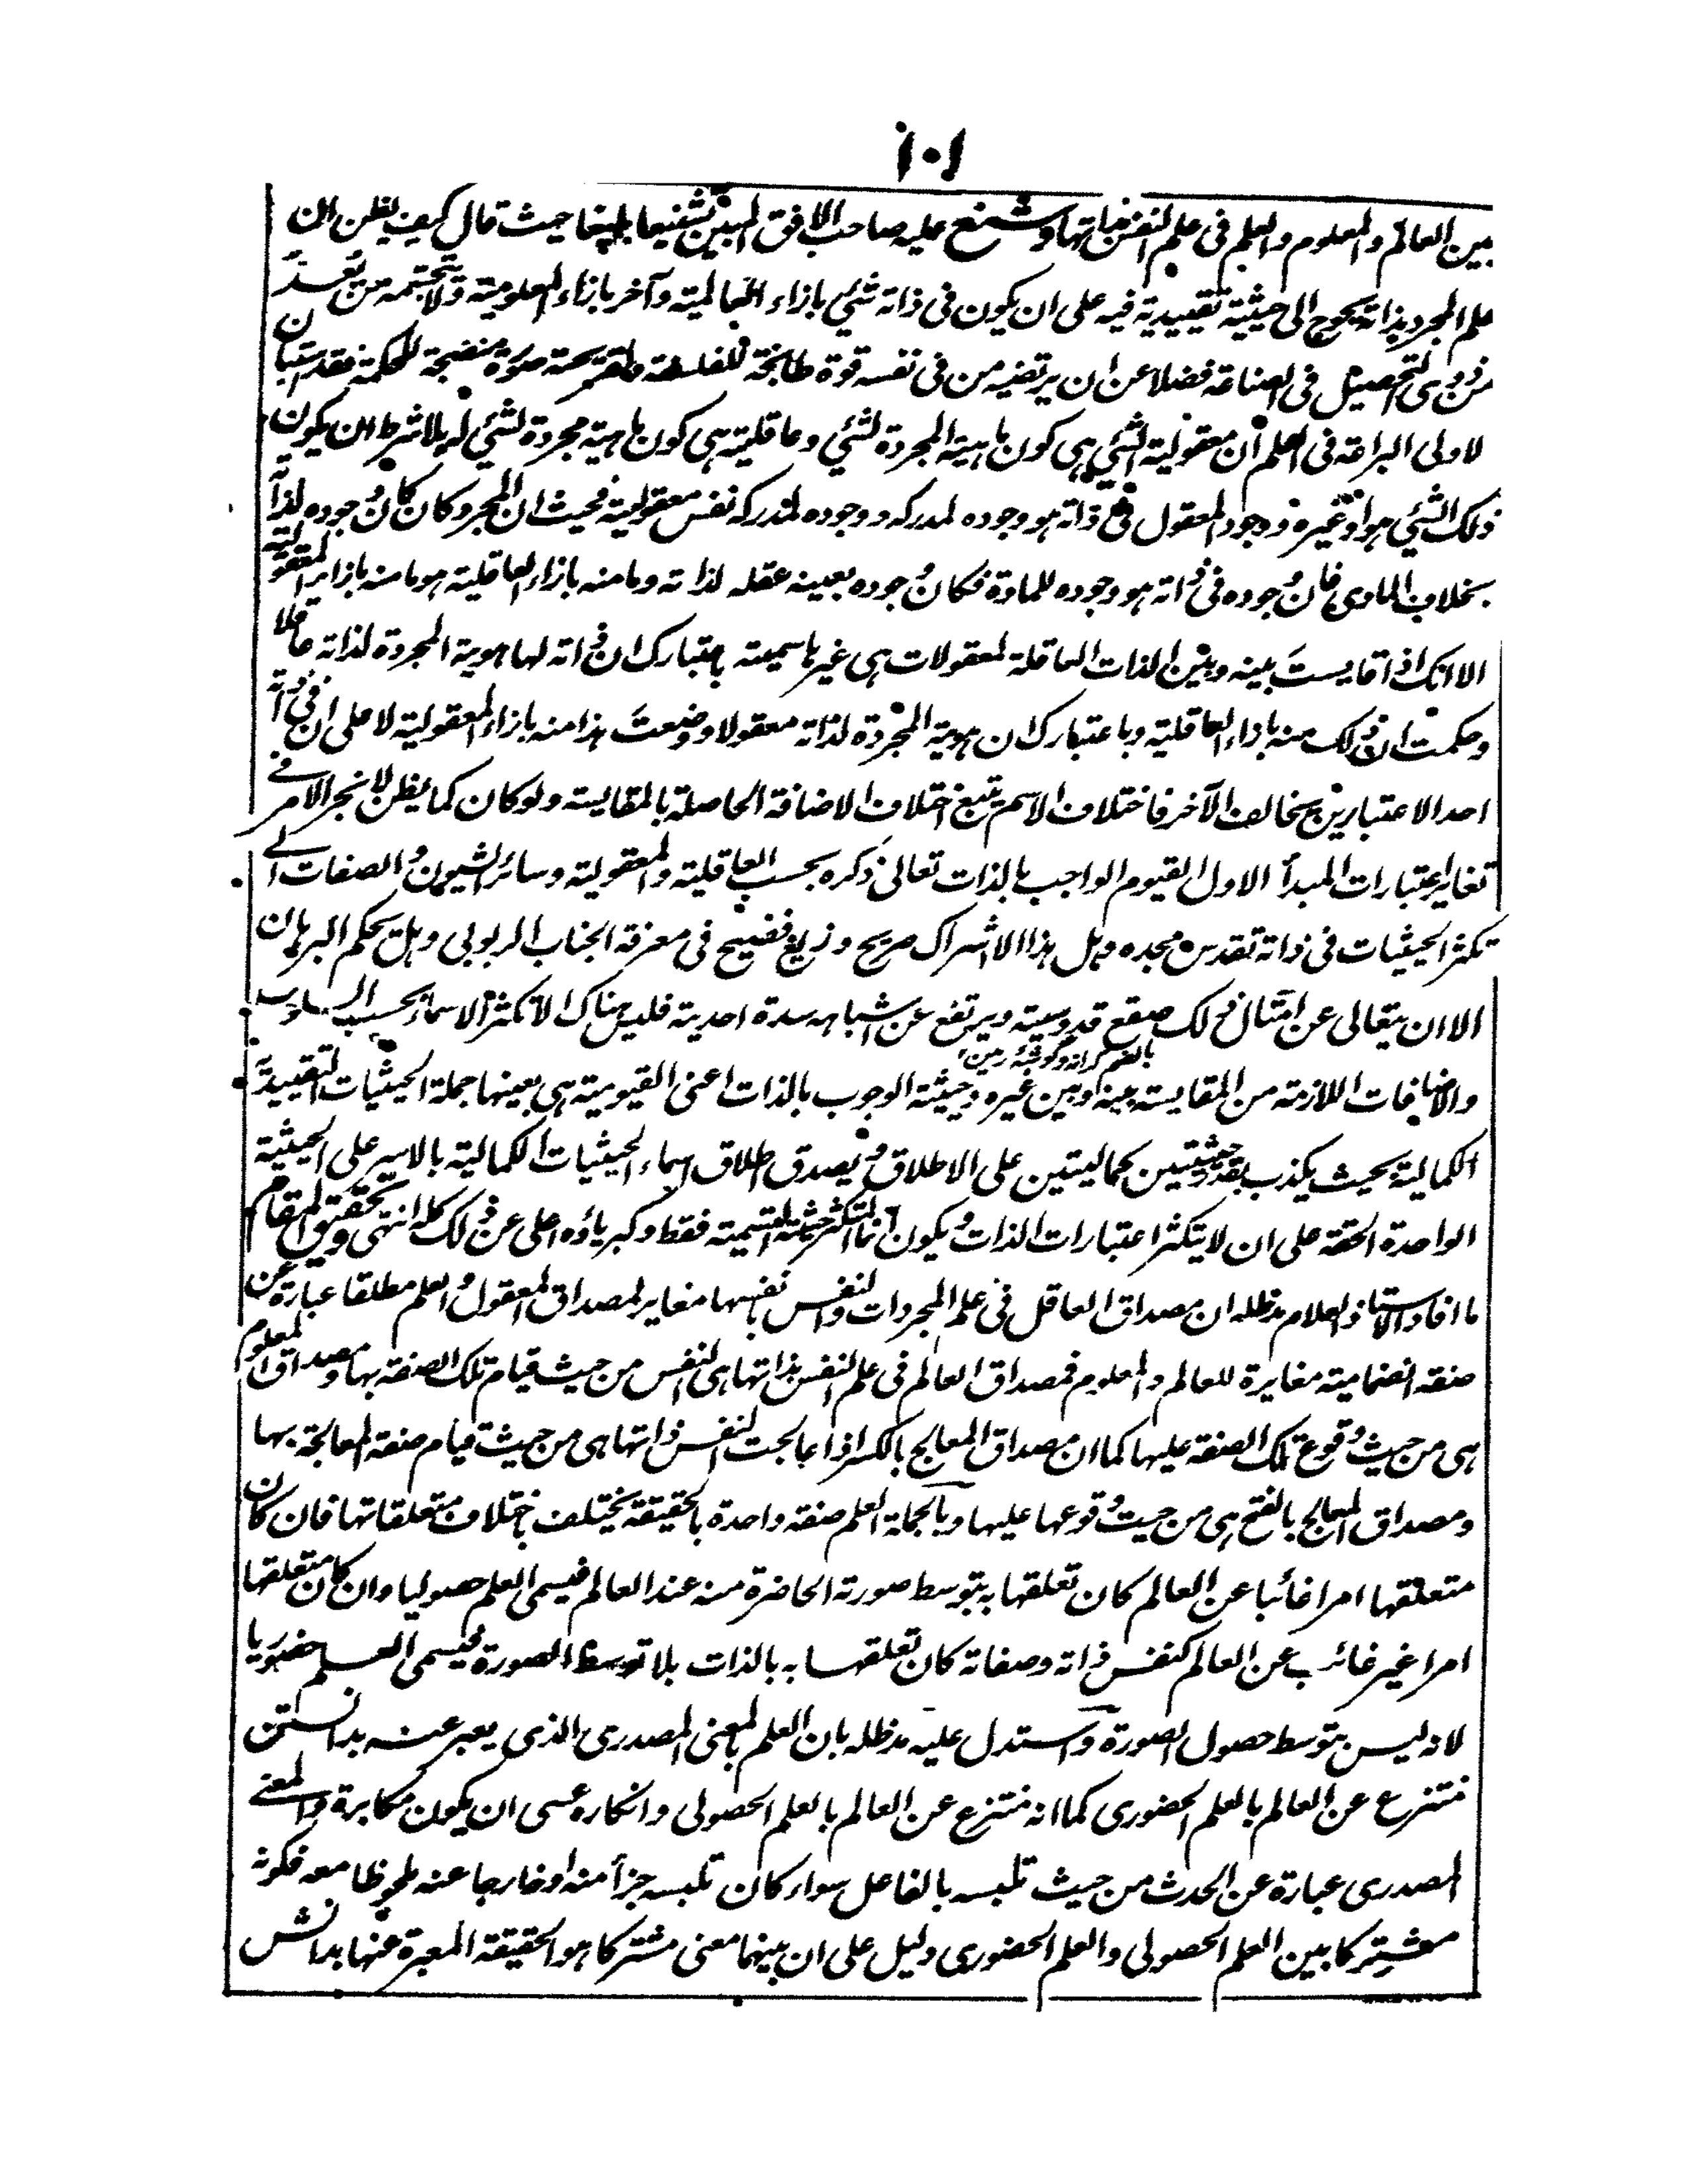 ١٠١
بين العالم والمعلوم والعلم في علم النفس بذاتها وشنع عليه صاحب الافق المبين تشنيعا بليغا حيث قال كيف يظن ان
علم المجرد بذاته يحوج الى حيثية تقييدية فيه على ان يكون في ذاته شئي بازاء العالمية وآخر بازاء المعلومية ولا يتجشمه من يعد
من ذوى التحصيل في الصناعة فضلا عن ان يرتضيه من في نفسه قوة طابخة للفلسفة منضجة للحكمة فقد استبان
لاولى البراعة في العلم ان معقولية الشئي هي كون ماهيته المجردة لشئي وعاقليته هي كون ماهية مجردة لشئي له بلا شرط ان يكون
ذلك الشئي هو او غيره ووجود المعقول في ذاته هو وجوده لمدركه ووجوده لمدركه نفس معقوليته فحيث ان المجرد كان كان وجوده لذاته
بخلاف المادى فان وجوده في ذاته هو وجوده للمادة فكان وجوده بعينه عقله لذاته وما منه بازاء العاقلية هو ما منه بازاء المعقولية
الا انك اذا قايست بينه وبين الذات العاقلة لمعقولات هي غيرها سميته باعتبارك ان ذاته لها هوية المجردة لذاته عاقلا
وحكمت ان ذلك منه بازاء العاقلية وباعتبارك ان هويته المجردة لذاته معقولا ووضعت هذا منه بازاء المعقولية لا على ان في ذاته
احد الاعتبارين يخالف الآخر فاختلاف الاسم يتبع اختلاف الاضافة الحاصلة بالمقايسة ولو كان كما يظن لانجر الامر في
تغاير اعتبارات المبدأ الاول القيوم الواجب بالذات تعالى ذكره بحسب العاقلية والمعقولية وسائر الشيون والصفات الى
تكثر الحيثيات في ذاته تقدس مجده وهل هذا الا اشراك صريح وزيغ فضيح في معرفة الجناب الربوبي وهل يحكم البرهان
الا ان يتعالى عن امثال ذلك صقع قدوسيته ويرتفع عن اشباهه سدة احديته فليس هناك الا تكثر الاسماء بحسب السلوب
بالضم كرانه وگوشئه زمين
والاضافات اللازمة من المقايسة بينه وبين غيره وحيثية الوجوب بالذات اعنى القيومية هي بعينها جملة الحيثيات التقييدية
الكمالية بحيث يكذب بعد حيثيتين كماليتين على الاطلاق ويصدق اطلاق اسماء الحيثيات الكمالية بالاسر على الحيثية
الواحدة الحقة على ان لا يتكثر اعتبارات الذات ويكون انما التكثر حيثية التسمية فقط وكبرياؤه اعلى عن ذلك كله انتهى وتحقيق المقام
ما افاد الاستاذ العلام مد ظله ان مصداق العاقل في علم المجردات والنفس بانفسها مغاير لمصداق المعقول والعلم مطلقا عبارة عن
صفة انضمامية مغايرة للعالم والمعلوم فمصداق العالم في علم النفس بذاتها هي النفس من حيث قيام تلك الصفة بها ومصداق المعلوم
هي من حيث وقوع تلك الصفة عليها كما ان مصداق المعالج بالكسر اذا عالجت النفس ذاتها هي من حيث قيام صفة المعالجة بها
ومصداق المعالج بالفتح هي من حيث وقوعها عليها وبالجملة العلم صفة واحدة بالحقيقة يختلف باختلاف متعلقاتها فان كان
متعلقها امرا غائبا عن العالم كان تعلقها به بتوسط صورته الحاضرة منه عند العالم فيسمى العلم حصوليا وان كان متعلقها
امرا غير غائب عن العالم كنفس ذاته وصفاته كان تعلقها به بالذات بلا توسط الصورة فيسمى العلم حضوريا
لانه ليس بتوسط حصول الصورة واستدل عليه مد ظله بان العلم بالمعنى المصدرى الذى يعبر عنه بدانستن
منتزع عن العالم بالعلم الحضورى كما انه منتزع عن العالم بالعلم الحصولى وانكاره عسى ان يكون مكابرة والمعنى
المصدرى عبارة عن الحدث من حيث تلبسه بالفاعل سواء كان تلبسه جزأ منه او خارجا عنه ملحوظا معه فكونه
مشتركا بين العلم الحصولى والعلم الحضورى دليل على ان بينهما معنى مشتركا هو الحقيقة المعبرة عنها بدانش